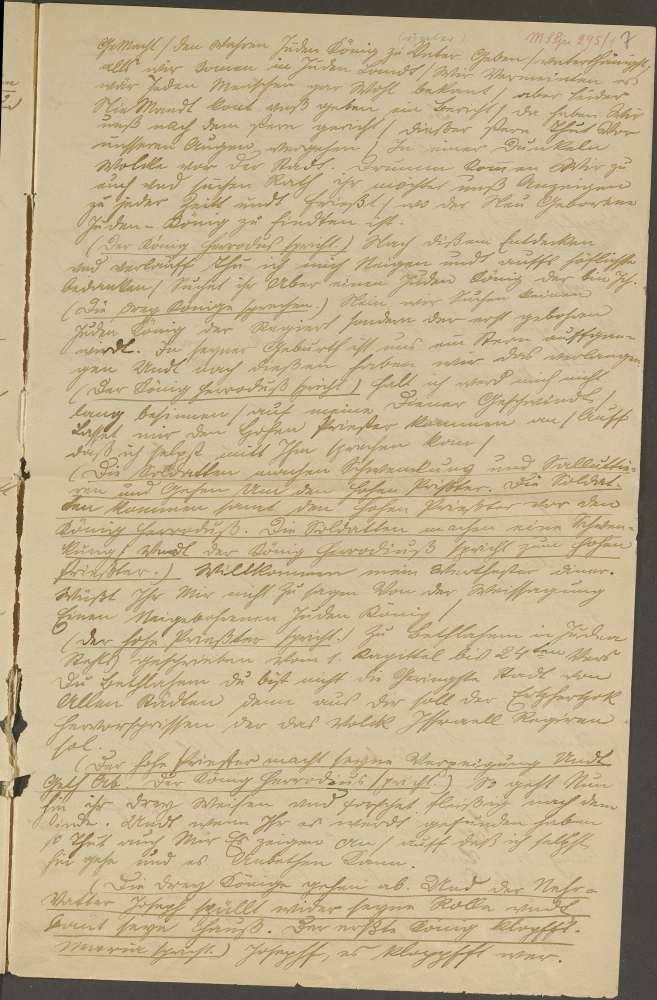 (wieder)
M3 Sp. 295/1 7
Gemacht / den wahren Juden König zu Unter Geben / unterthänigst;
alls wir kamen in Juden Landt / Wir Vermeinten es
wär Jeden Menschen gar Wohl bekant / aber leider
Nie Mandt kont unß geben ein Bericht / da haben Wir
unß nach dem stern gericht / dießer stern thut Vor
unsseren Augen vergehen / In einer Dunkeln
Wolcke vor der Stadt. Drumen komen Wir zu
euch und suchen Rath ihr möchtet unß Anzeigen
zu jeder Zeitt undt Frießt / wo der Neu Geborene
Juden-König zu Findten ist.
(Der König Herrodus spricht.) Nach disem Entdecken
und verlauff thu ich mich Neigen undt auffs höfligste
bedancken / Suchet ihr Aber einen Juden König der bin Ich.
(Die drey Könige sprechen.) Nein, wir Suchen keinen
Juden König der Regiert sondern der erst gebohren
wirdt. In seyner Geburth ist uns ein Stern auffgan-
gen Undt nach dießen haben wir das verlangen
(Der König Herroduß spricht) halt ich werd mich nicht
lang besinnen / auf meine Diener Geschwindt /
Lasset mir den Hohen Priester kommen an / Auff
daß ich selbst mitt Ihm sprechen kan /
(Die Soldatten machen Schwenckung und Sallutti-
ren und Gehen Um den Hohen Prießter. Die Soldat-
ten kommen samt den Hohen Prießter vor den
König Herroduß. Die Soldatten machen eine Schwen-
kung / Undt der König Herrodiuß spricht zum Hohen
Prießter.) Willkommen mein Werthester diener.
Wüßt Ihr Mir nicht zu sagen Von der Weissagung
Einen Neigebohrenen Juden König /
(der hohe Prießter spricht.) Zu Bethlahem in Judea
Steht geschrieben vom 1. Kapittel bis 24ten Vers
Du Bethlahem du bist nicht die Geringste Stadt von
Allen Städten denn aus der soll der Ertzhertzok
hervorsprissen der das Volck Issraell Regiren
sol.
(Der hohe Priester macht seyne Verneigung Undt
Geth Ab. Der König Herrodus spricht.) So geht Nun
hin ihr drey Weisen und forschet fleißig nach dem
Kinde. Undt wenn Ihr es werdt gefunden haben
so Thut auch Mir Es zeigen an / auff daß ich selbst
hin gehe und es Anbethen kann.
(Die drey Könige gehen ab. Und der Nehr-
Vatter Joseph spillt wider seyne Rolle undt
baut seyn Hauß. Der erßte König klopfft.
Maria spricht.) Josephf, es klopphft wer.